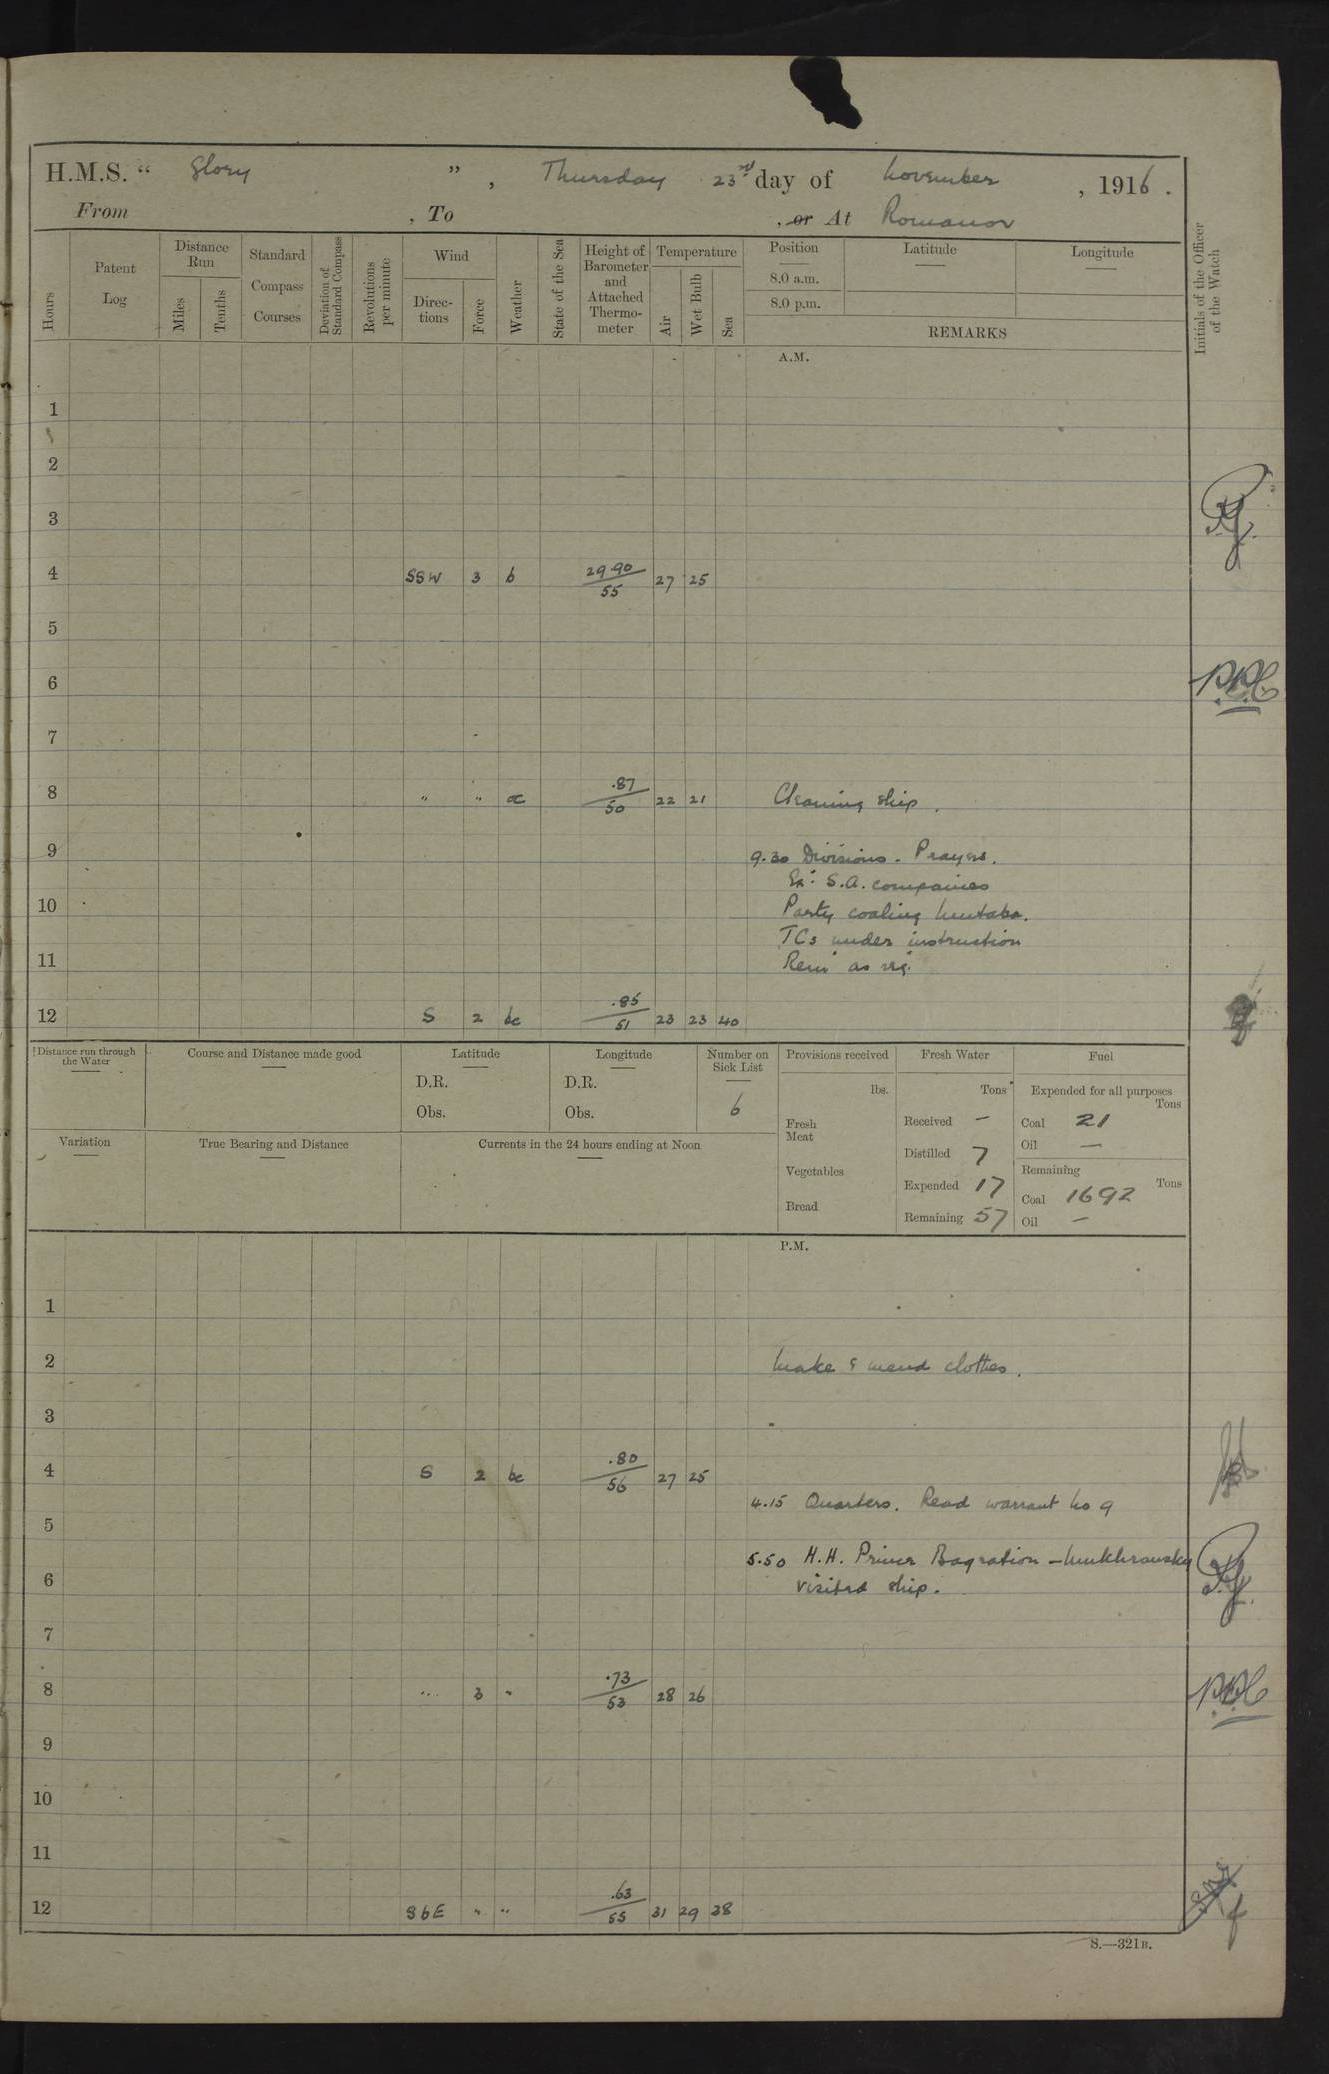 H.M.S. “ Glory ” , Thursday 23rd day of November , 1916 .
From , To , or At Romanov
Hours
Patent Log
Distance Run
Miles
Tenths
Standard Compass Courses
Deviation of Standard Compass
Revolutions per minute
Wind
Direc-tions
Force
Weather
State of the Sea
Height of Barometer and Attached Thermo-meter
Temperature
Air
Wet Bulb
Sea
Position
8.0 a.m.
8.0 p.m.
Latitude
Longitude
REMARKS
Initials of the Officer of the Watch
A.M.
1
2
3
4 SSW 3 b 29.90/55 27 25
5
6
7
8 " " oc .87/50 22 21 Cleaning ship .
9 9.30 Divisions - Prayers.
Ex: S.A. companies
10 Party coaling
TCs under instruction
11 Rem as req.
12 S 2 bc .85/51 23 23 40
Distance run through the Water
Course and Distance made good
Latitude
D.R.
Obs.
Longitude
D.R.
Obs.
Number on Sick List
6
Variation
True Bearing and Distance
Currents in the 24 hours ending at Noon
Provisions received
lbs.
Fresh Meat
Vegetables
Bread
Fresh Water
Tons
Received -
Distilled 7
Expended 17
Remaining 57
Fuel
Expended for all purposes
Tons
Coal 21
Oil —
Remaining
Tons
Coal 1692
Oil —
P.M.
1
2 Make & mend clothes .
3
4 S 2 bc .80/56 27 25
4.15 Quarters. Read warrant No 9
5
5.50 H.H. Prince Bagration - Mukhransky
6 visited ship.
7
8 " 3 " .73/53 28 26
9
10
11
12 SbE " " .63/55 31 29 38
S.—321B.